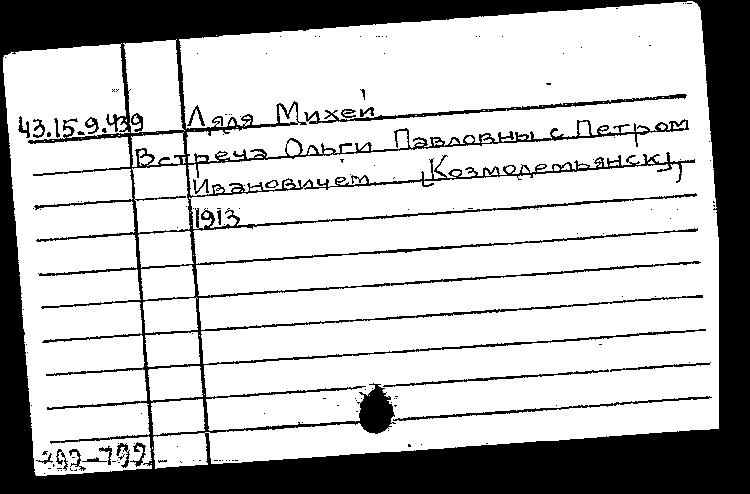 43.15.9.439 Дядя Михей
Встреча Ольги Павловны с Петром
Ивановичем [Козмодемьянск],
1913
792-792